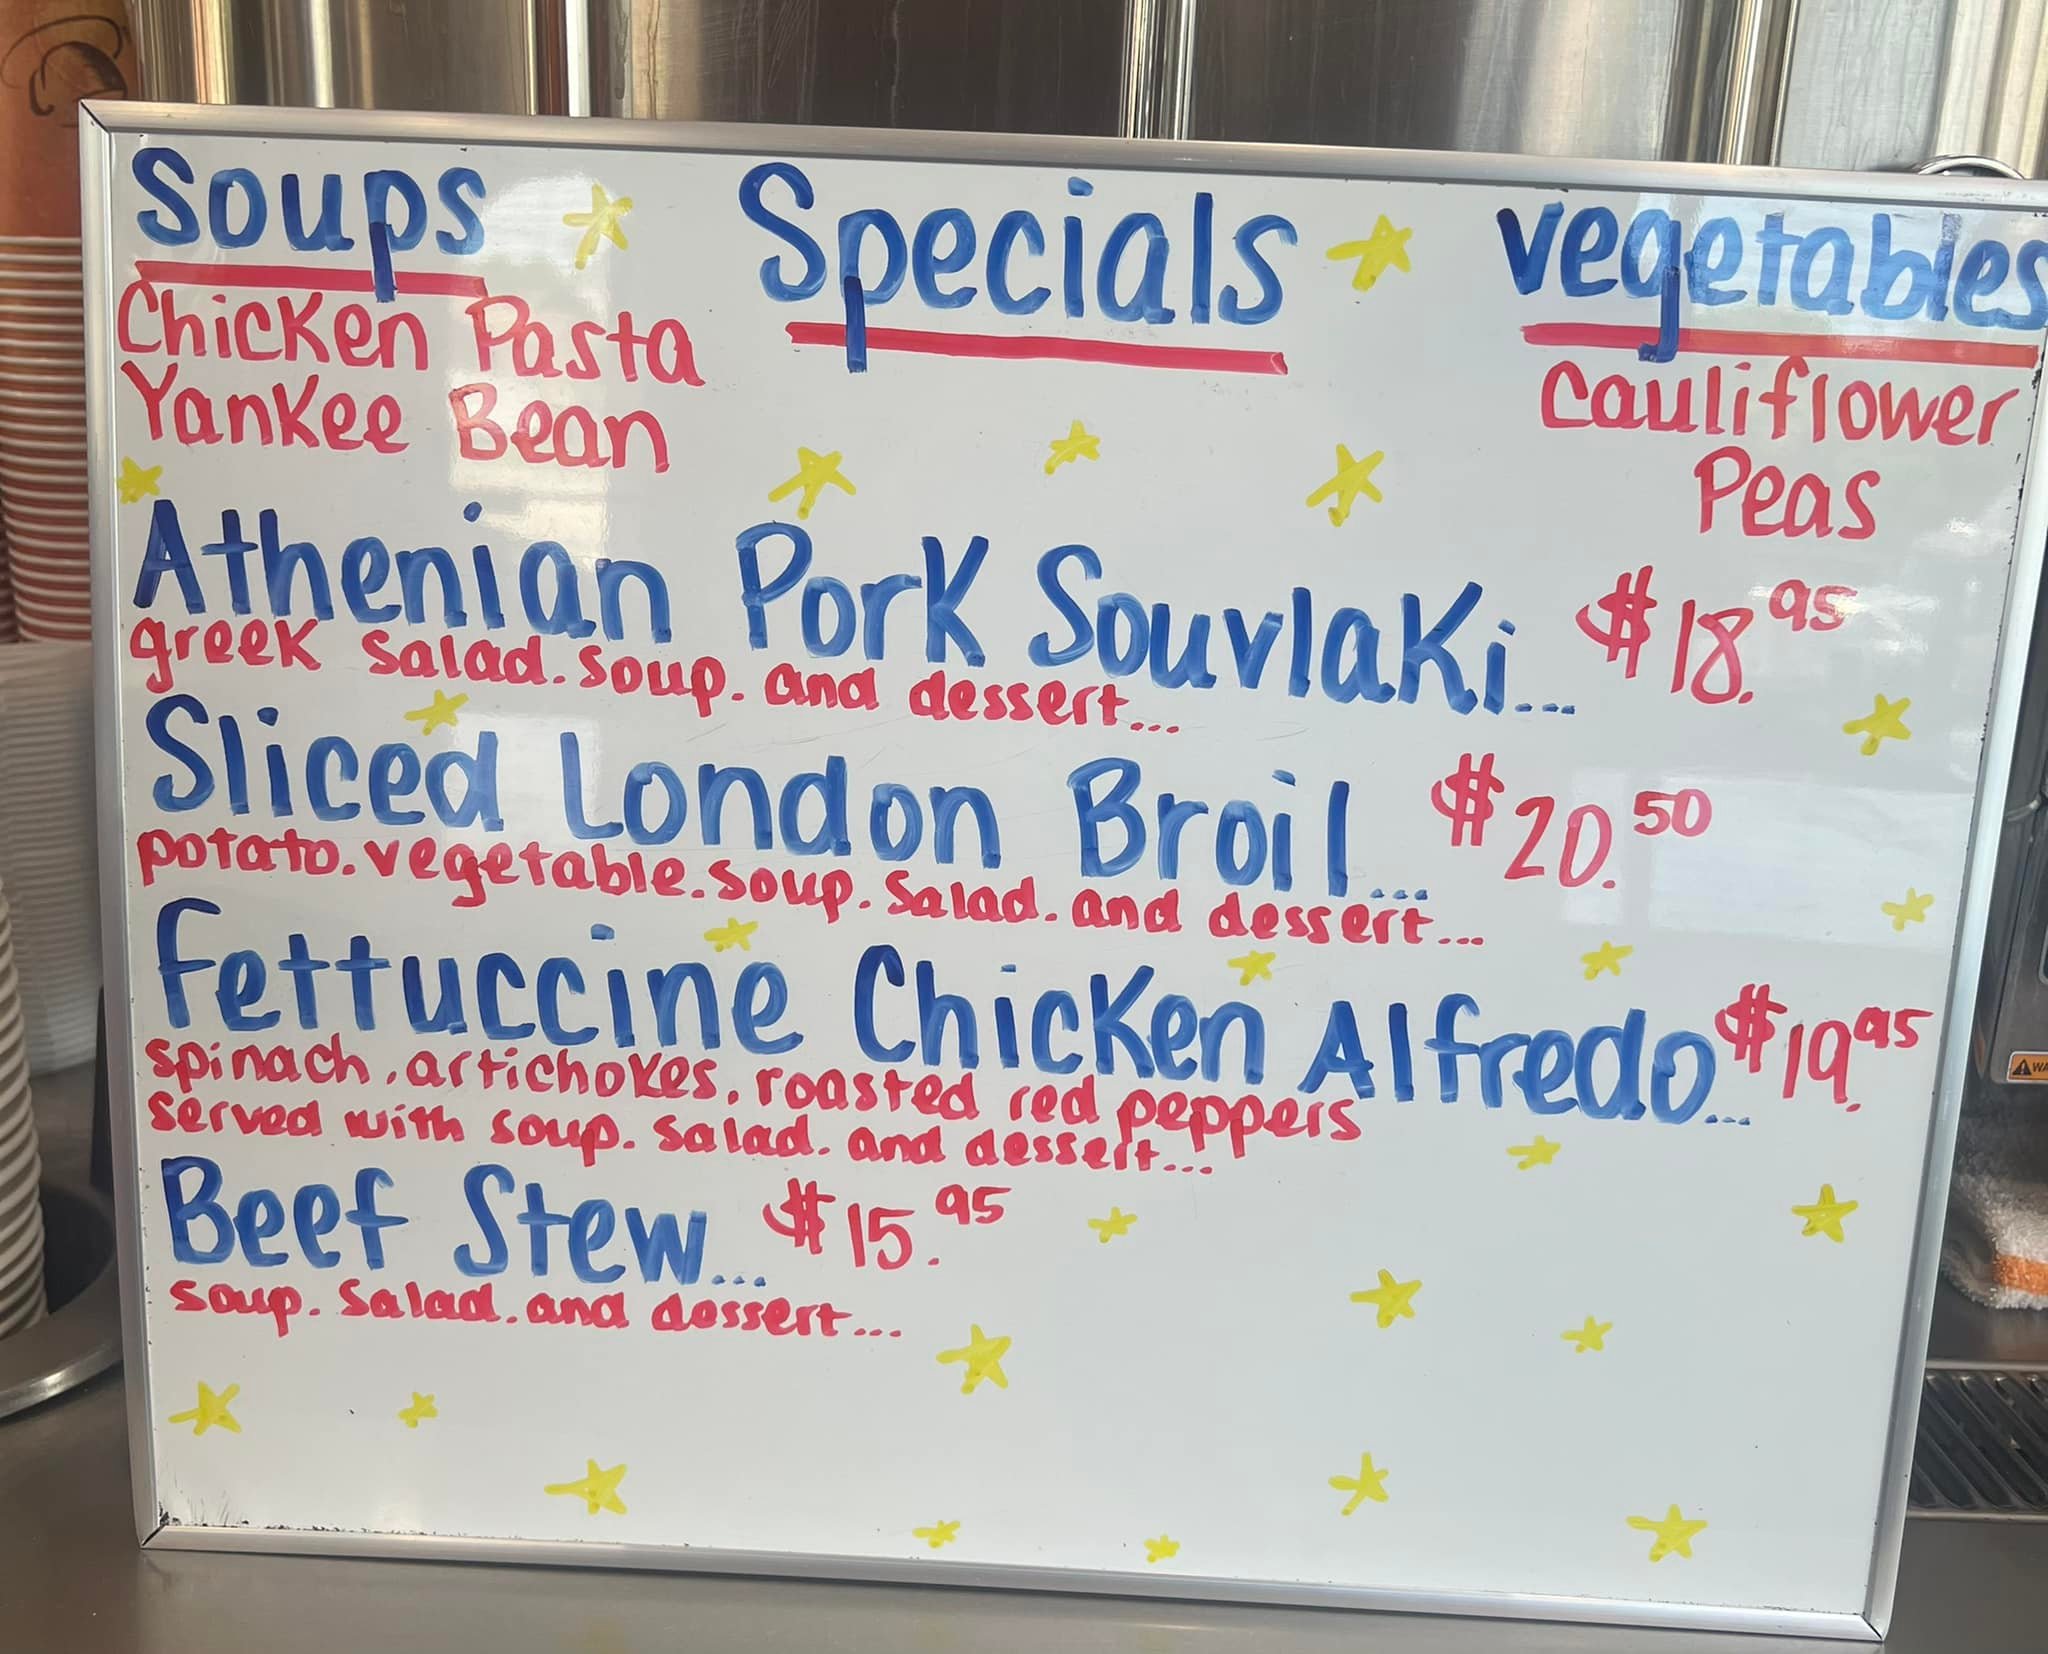 Soups
Specials
Vegetables
Chicken Pasta
Yankee Bean
Cauliflower
Peas
Athenian Pork Souvlaki... $18.95
greek salad. soup. and dessert...
Sliced London Broil... $20.50
potato. vegetable. soup. salad. and dessert...
Fettuccine Chicken Alfredo... $19.95
spinach, artichokes, roasted red peppers
served with soup. salad. and dessert...
Beef Stew... $15.95
soup. salad. and dessert...